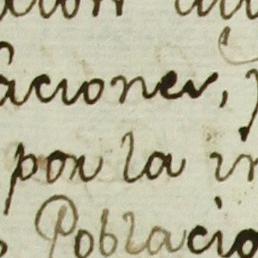 aciones,
por la in
Poblacio